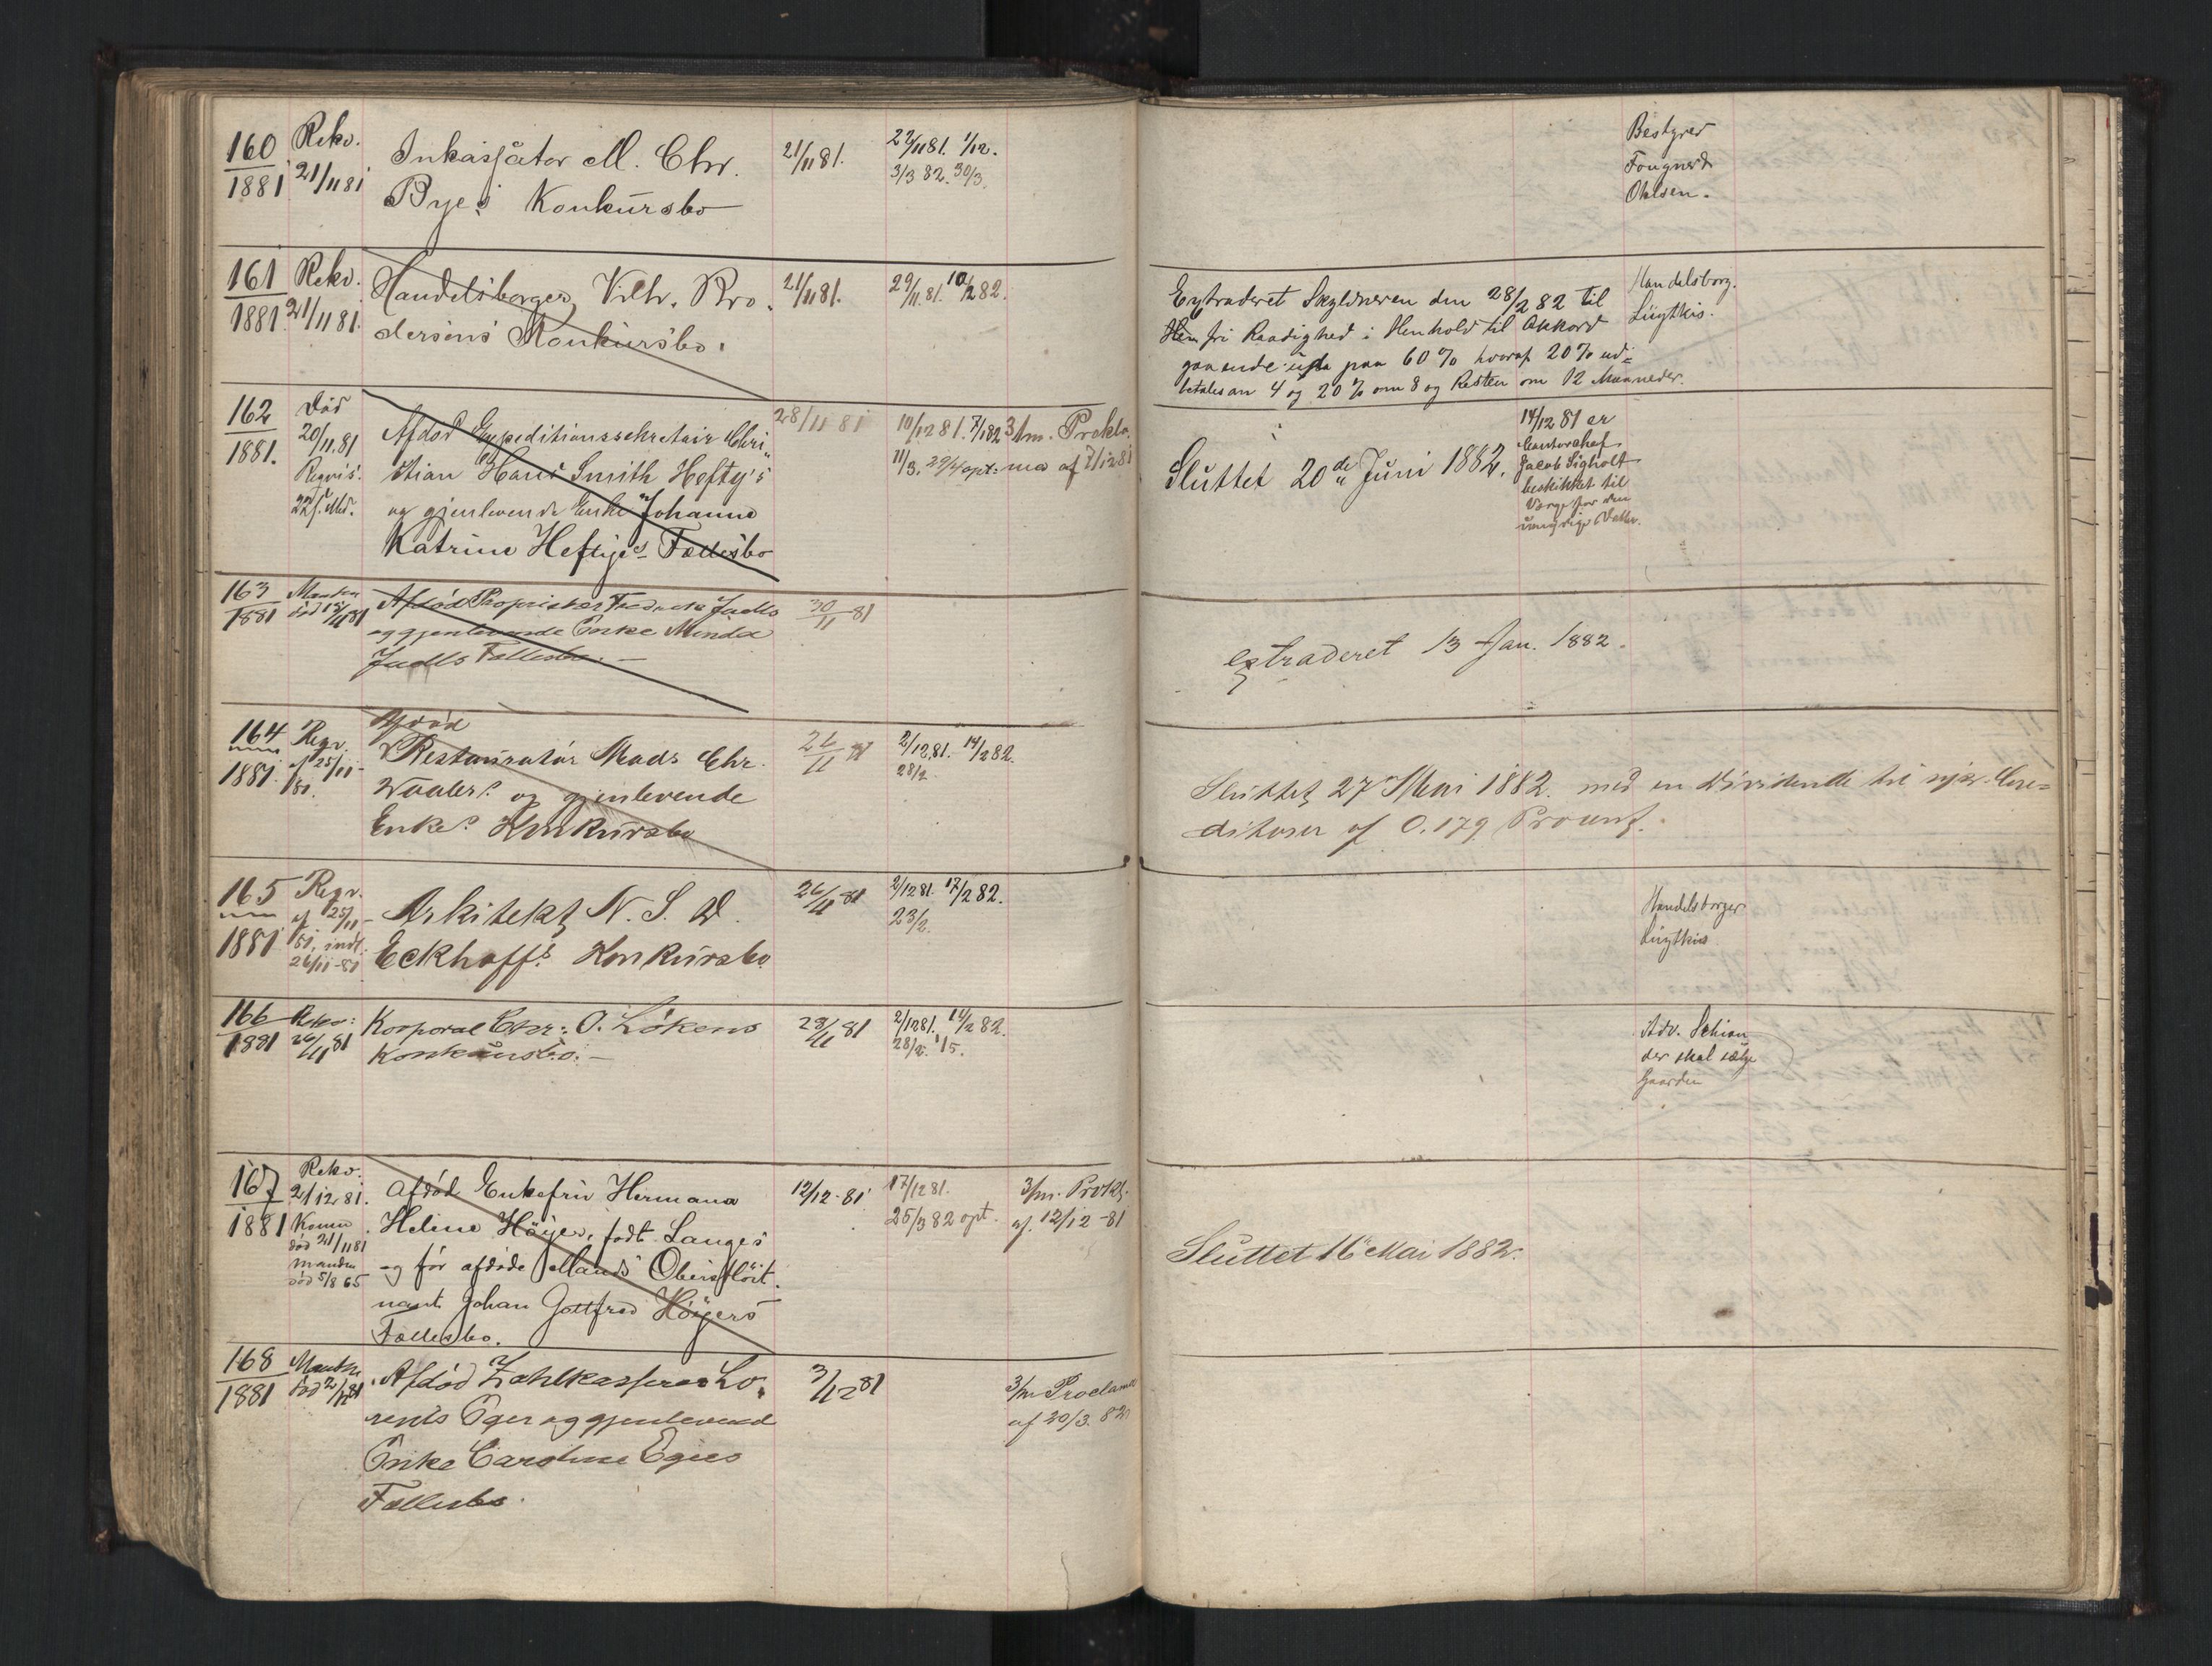 160 Rekv. Inkassator M. Chr. 21/11 81. 29/11 81. 1/12. Bestyrer
1881 21/11 81 Bye's Konkursbo 3/3 82. 30/3. Fougner
Ohlsen.
161 Rekv. Handelsborger Vilh. Bro- 21/11 81. 29/11. 81. 10/2 82. Extraderet Skyldneren den 28/2 82 til Handelsborg.
1881. 21/11 81. dersens Konkursbo. fri Raadighed i Henhold til Akkord Lüytkis.
gaaende paa 60 % hvoraf 20 % ud=
betales om 4 og 20 % om 8 og Resten om 12 Maaneder.
162 Død Afdød Expeditionssekretair Chri- 28/11 81 10/12 81. 7/1 82 3 Am. Prekla- 14/12 81 er
1881. 20/11.81 stian Hans Smith Hefty's 11/3. 29/4 opt. ma af 7/12 81 Sluttet 20de Juni 1882. Contorchef
Reqvis. og gjenlevende Enke Johanne Jacob Sigholt
22/ s. Md. Katrine Heftyes Fællesbo beskikket til
Værge for den
umyndige Datter.
163 Manden Afdød Proprietær Juells 30/11 81
1881 død og gjenlevende Enke Minda extraderet 13 Jan. 1882.
Juells Fællesbo. —
164 Reqv. Afdød
1881. af 25/11 - Restauratør Mads Chr. 26/11 81 2/12 81. 14/2 82.
81. Waalers og gjenlevende 28/2. Sluttet 27 Mai 1882. med en Dividende til Cre=
Enkes Konkursbo ditorer af 0.179 Procent.
165 Reqv. Arkitekt N. S. D. 26/11 81 2/12 81. 17/2 82. Handelsborger
1881 af 25/11 - Eckhoff's Konkursbo 23/2. Lüytkis
81, indl.
26/11 - 81
166 Rekv: Korporal Chr: O. Løkens 28/11 81 2/12 81. 14/2 82. Adv. Schiøn
1881 26/11 81 Konkursbo. — 28/2. 1/5. der skal sælge
Gaarden
167 Rekv. Afdød Enkefru Hermana 12/12 - 81 17/12 81. 3/m. Prokl.
1881 2/12 81. Heline Høyer, født Lange's 25/3 82 opt. af 12/12 - 81
Konen død 21/11 81 og før afdøde Mands Oberstløit- Sluttet 16 Mai 1882.
manden død 5/8 65 nant Johan Gottfred Høyers
Fællesbo.
168 Manden Afdød Zahlkasserer Lo- 3/12 81 3/m Proclama
1881 død 2/12 81 rents Eger og gjenlevend af 20/3. 82
Enke Caroline Egers
Fællesbo.